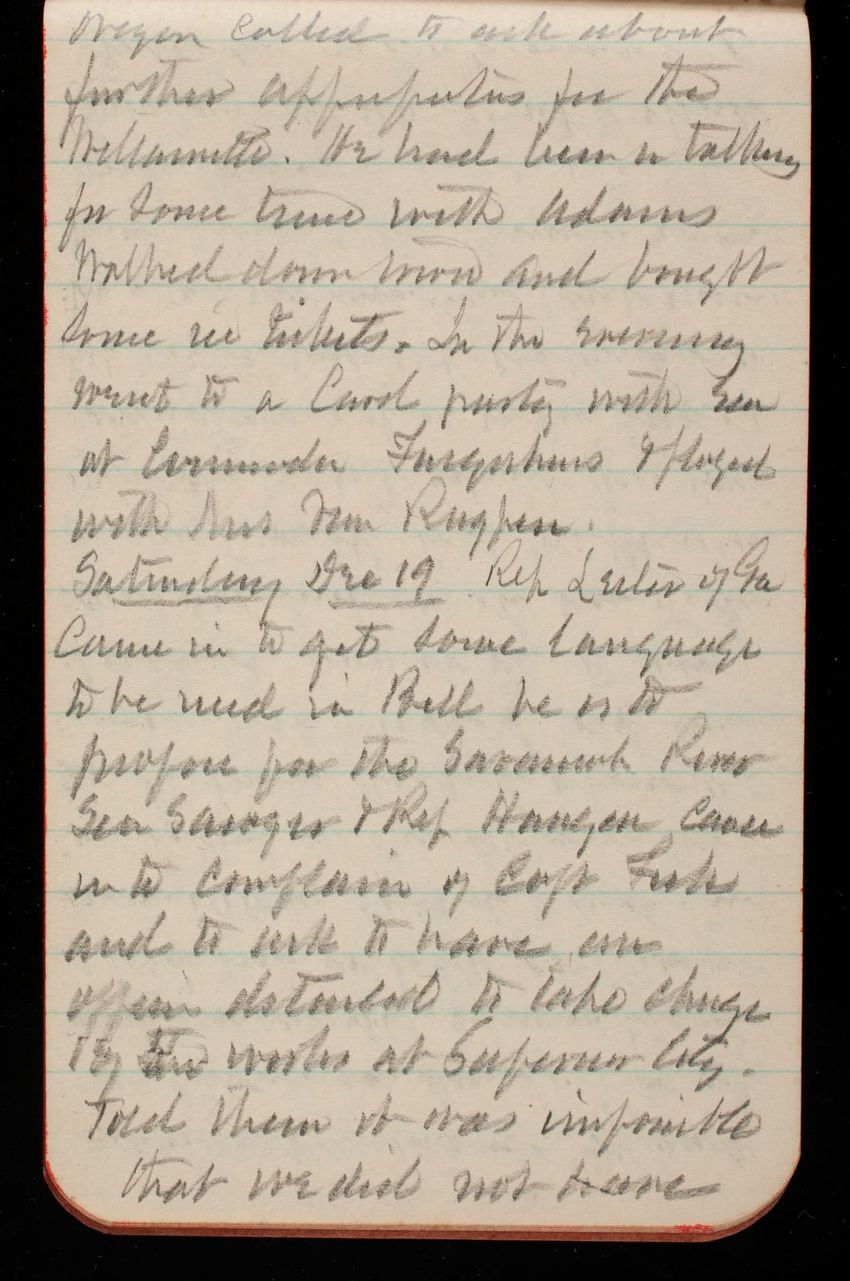 Oregon called to ask about
further appropriatns for the
Willamette. He had been in talking
for some time with Adams
Walked down town and bought
some rec tickets. In the evening
went to a Card party with
at Commander Farquhars & played
with Mrs Van
Saturday Dec 19 Rep Lester of Ga
Came in to get some language
to be used in Bill he is to
propose for the Savannah River
Sen Sawyer & Rep Haugen came
in to complain of Capt
and to ask to have an
officer detached to take charge
of the works at Superior City.
Told them it was impossible
that we did not have